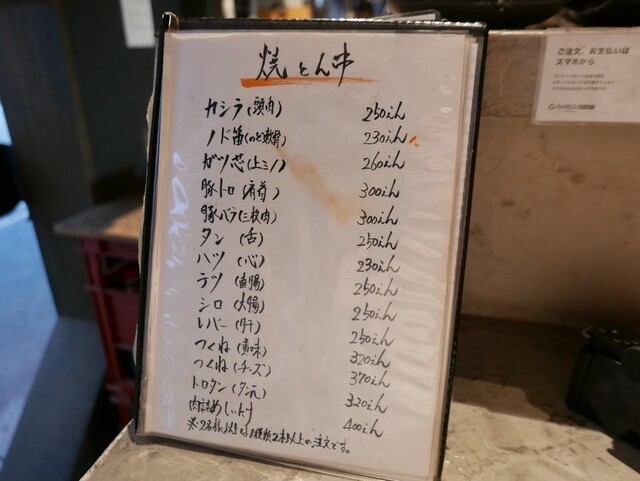 焼とん串
カシラ(頭肉) 250えん
ノド笛(のど軟骨) 230えん
ガツ芯(上ミノ) 260えん
豚トロ(肩首) 300えん
豚バラ(三枚肉) 300えん
タン(舌) 250えん
ハツ(心) 230えん
テツ(直腸) 250えん
シロ(大腸) 250えん
レバー(肝) 250えん
つくね(黄味) 320えん
つくね(チーズ) 370えん
トロタン(タン元) 320えん
肉詰めしいたけ 400えん
以上の注文です。
ご注文、お支払いは
スマホから